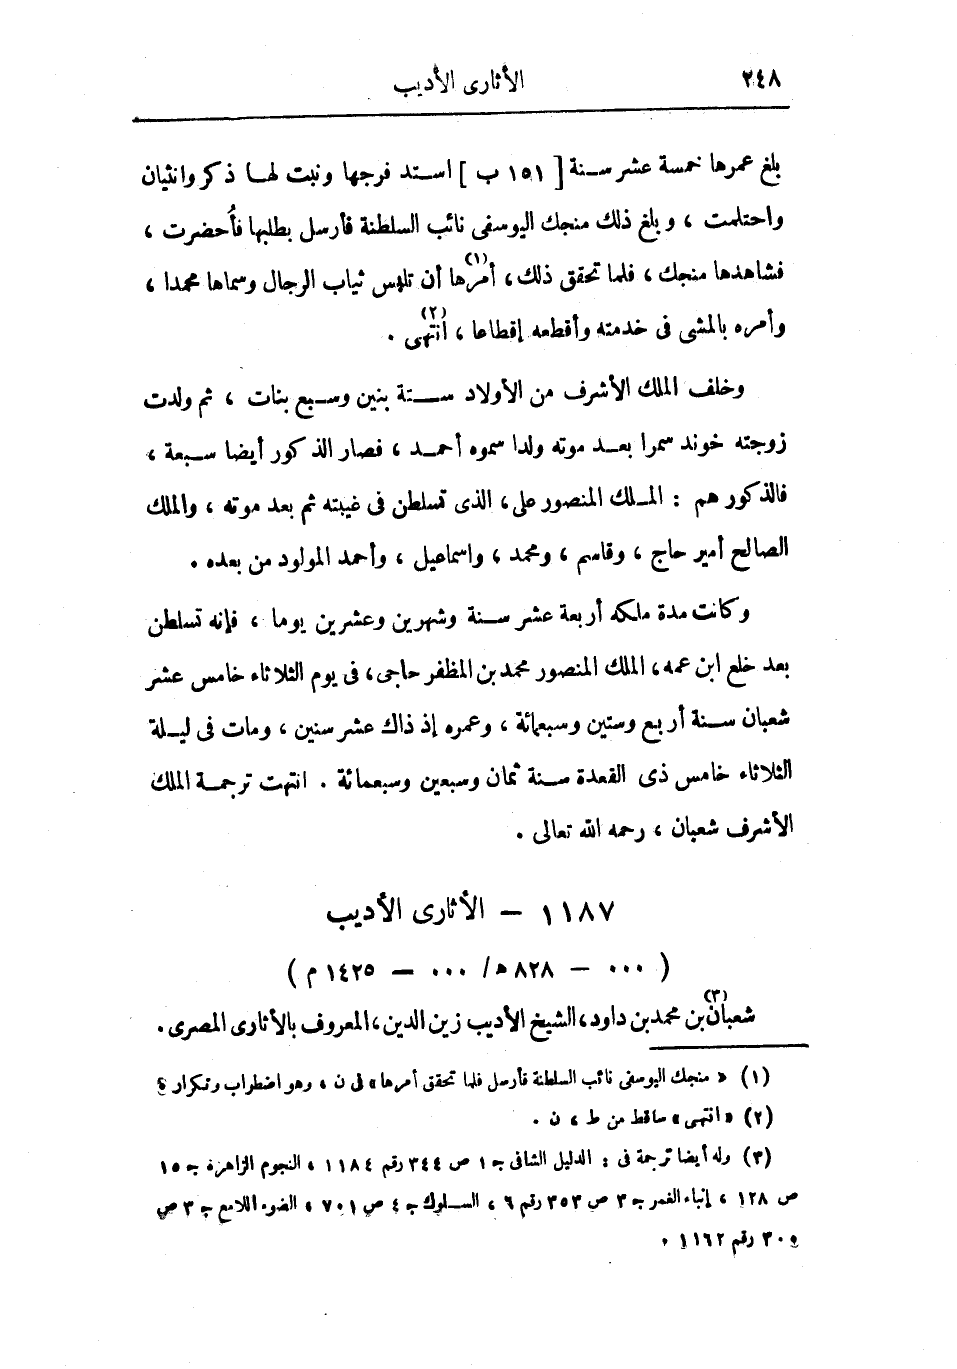 ٢٤٨ الأثارى الأديب
بلغ عمرها خمسة عشر سنة [ ١٥١ ب ] استد فرجها ونبت لها ذكر وانثيان
واحتلمت ، وبلغ ذلك منجك اليوسفى نائب السلطنة فأرسل بطلبها فأُحضرت ،
فشاهدها منجك ، فلما تحقق ذلك، أمرها(١) أن تلبس ثياب الرجال وسماها محمدا ،
وأمره بالمشى فى خدمته وأقطعه إقطاعا ، انتهى(٢) .
وخلف الملك الأشرف من الأولاد ستة بنين وسبع بنات ، ثم ولدت
زوجته خوند سمرا بعد موته ولدا سموه أحمد ، فصار الذكور أيضا سبعة ،
فالذكور هم : الملك المنصور على، الذى تسلطن فى غيبته ثم بعد موته ، والملك
الصالح أمير حاج ، وقاسم ، ومحمد ، واسماعيل ، وأحمد المولود من بعده .
وكانت مدة ملكه أربعة عشر سنة وشهرين وعشرين يوما ، فإنه تسلطن
بعد خلع ابن عمه، الملك المنصور محمد بن المظفر حاجى، فى يوم الثلاثاء خامس عشر
شعبان سنة أربع وستين وسبعمائة ، وعمره إذ ذاك عشر سنين ، ومات فى ليلة
الثلاثاء خامس ذى القعدة سنة ثمان وسبعين وسبعمائة . انتهت ترجمة الملك
الأشرف شعبان ، رحمه الله تعالى .
١١٨٧ – الأثارى الأديب
( ٠٠٠ – ٨٢٨ ه/ ٠٠٠ – ١٤٢٥ م )
شعبان(٣) بن محمد بن داود، الشيخ الأديب زين الدين، المعروف بالأثارى المصرى .
(١) « منجك اليوسفى نائب السلطنة فأرسل فلما تحقق أمرها» فى ن ، وهو اضطراب وتكرار ؟
(٢) « انتهى » ساقط من ط ، ن .
(٣) وله أيضا ترجمة فى : الدليل الشافى ج ١ ص ٣٤٤ رقم ١١٨٤ ، النجوم الزاهرة ج ١٥
ص ١٢٨ ، إنباء الغمر ج ٣ ص ٣٥٣ رقم ٦ ، السلوك ج ٤ ص ٧٠١ ، الضوء اللامع ج ٣ ص
٣٠٠ رقم ١١٦٢ .